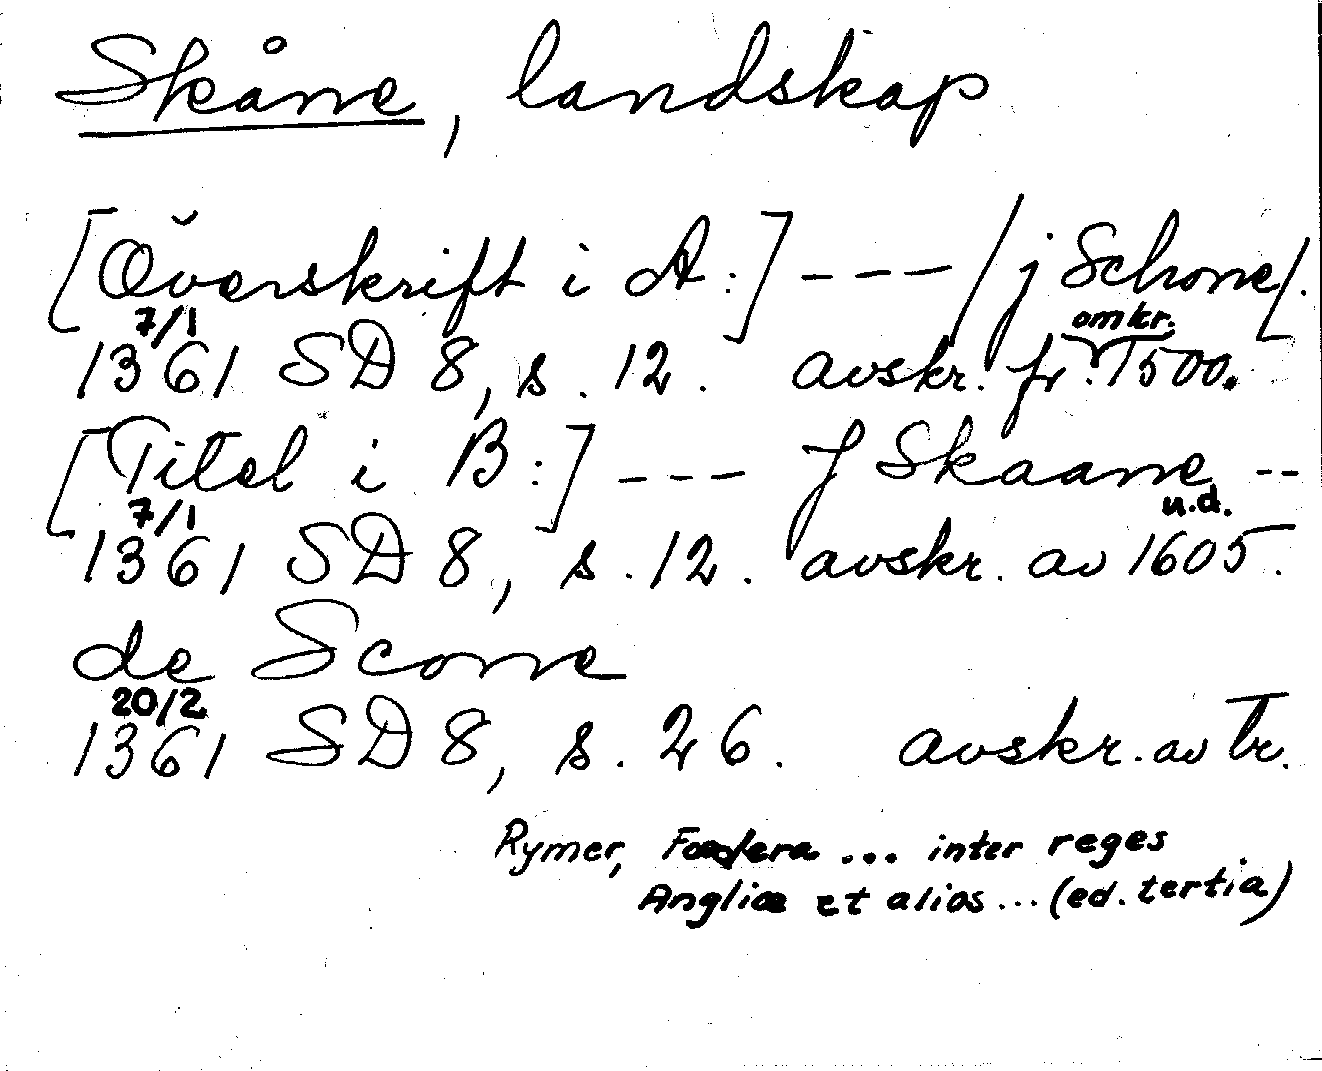 Skåne, landskap
[Överskrift i A:] --- / j Schone/.
7/1 omkr.
1361 SD 8, s. 12. avskr. fr. 1500.
[Titel i B:] --- J Skaane --
7/1 u.d.
1361 SD 8, s. 12. avskr. av 1605.
de Scone
20/2
1361 SD 8, s. 26. avskr. av Tr.
Rymer, Foedera ... inter reges
Angliæ et alios ... (ed. tertia)